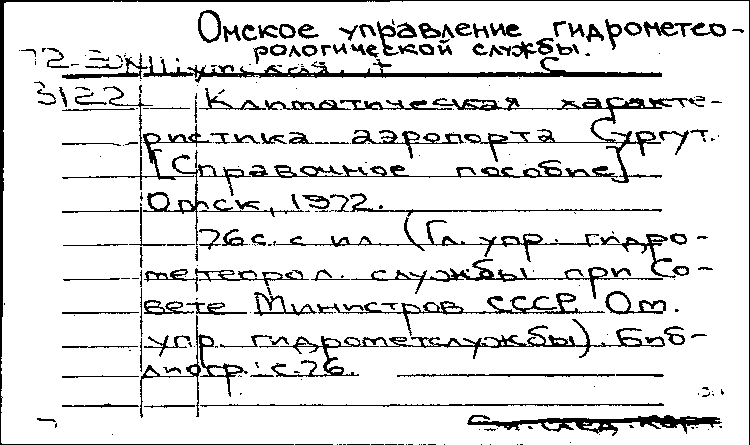 Омское управление гидрометео-
рологической службы.
72-
3122 Климатическая характе-
ристика аэропорта Сургут.
[Справочное пособие]
Омск, 1972.
76 с. с ил. (Гл. упр. гидро-
метеорол. службы при Со-
вете Министров СССР. Ом.
упр. гидрометслужбы). Биб-
лиогр.: с. 76.
См. след. карт.